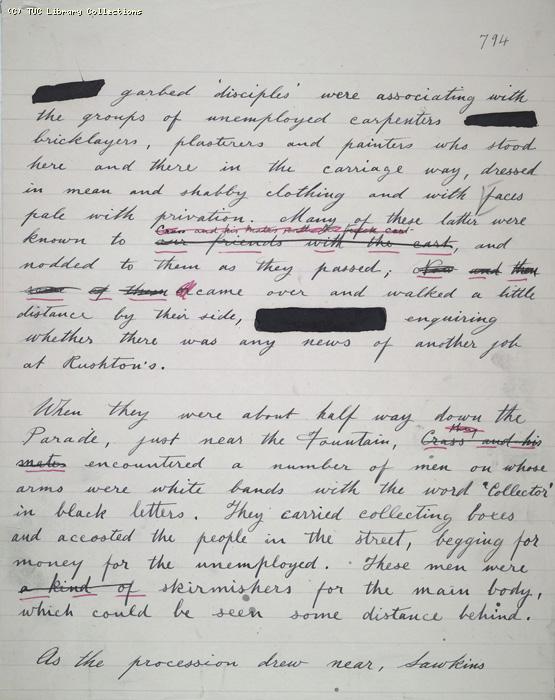 (C) TUC Library Collections
794
garbed 'disciples' were associating with
the groups of unemployed carpenters
bricklayers, plasterers and painters who stood
here and there in the carriage way, dressed
in mean and shabby clothing and with faces
pale with privation. Many of these latter were
Crass and his mates
known to our friends with the cart, and
nodded to them as they passed; Now and then
some of them came over and walked a little
distance by their side, enquiring
whether there was any news of another job
at Rushton's.
When they were about half way down the
they
Parade, just near the Fountain, Crass and his
mates encountered a number of men on whose
arms were white bands with the word 'Collector'
in black letters. They carried collecting boxes
and accosted the people in the street, begging for
money for the unemployed. These men were
a kind of skirmishers for the main body,
which could be seen some distance behind.
As the procession drew near, Sawkins